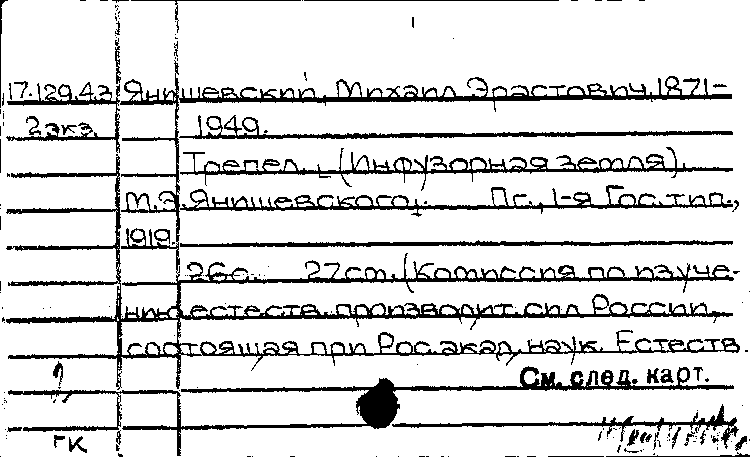 17.129.43 Янишевский, Михаил Эрастович, 1871-
2 экз. 1949.
Трепел. (Инфузорная земля).
М.Э. Янишевского. Пг., 1-я Гос. тип.,
1919.
26 с. 27 cm. (Комиссия по изуче-
нию естеств. производит. сил России,
состоящая при Рос. акад. наук. Естеств.
См. след. карт.
гк